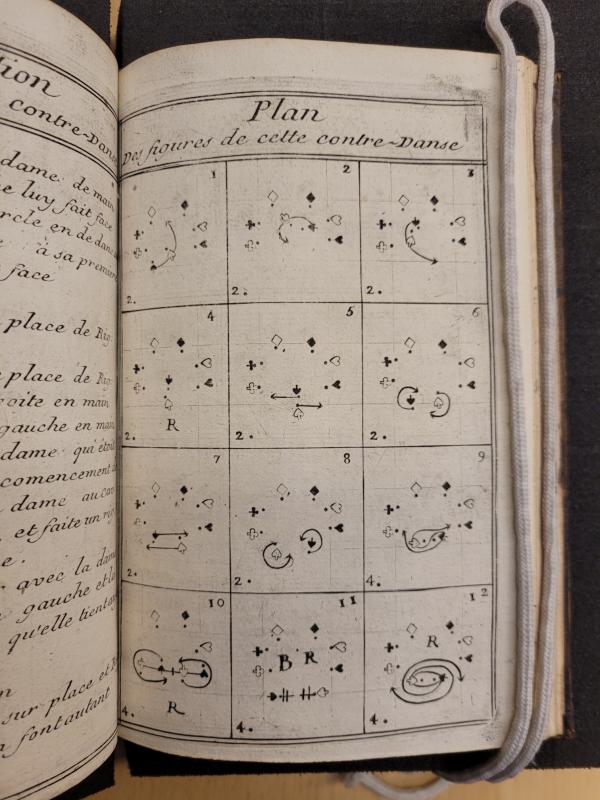 tion
contre-Danse
dame de main
luy fait face
cercle en dedans
à sa premiere
face
place de Rig.
place de Rig.
droite en main
gauche en main
dame qui étoit
comencement
dame au
et faite un rig
avec la dame
gauche et le
qu'elle tient
sur place et
font autant
Plan
Des figures de cette contre-Danse
1 2 3
2. 2. 2.
4 5 6
R
2. 2. 2.
7 8 9
2. 2. 4.
10 11 12
B R R
R
4. 4. 4.